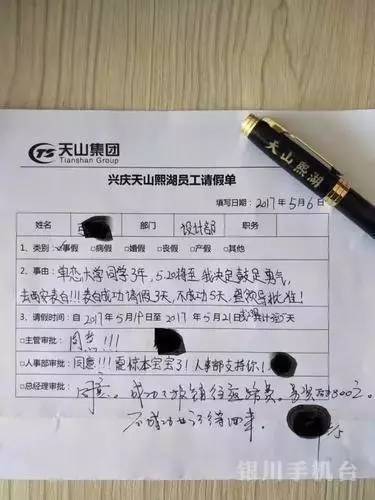 天山集团
Tianshan Group
天山熙湖
兴庆天山熙湖员工请假单
填写日期：2017年5月6日
姓名 部门 设计部 职务
1、类别：☑事假 □病假 □婚假 □丧假 □产假 □其他
2、事由：单恋大学同学3年，5.20将至，我决定鼓足勇气，
去西安表白!!!表白成功请假3天，不成功5天，恳领导批准！
3、请假时间：自2017年5月19日至2017年5月21日 共计 5天
□主管审批：同意!!!
□人事部审批：同意!!! 愿你本宝宝了! 人事部支持你!
□总经理审批：同意。成功了报销往返路费，另奖励800元。
不成功 来。
银川手机台